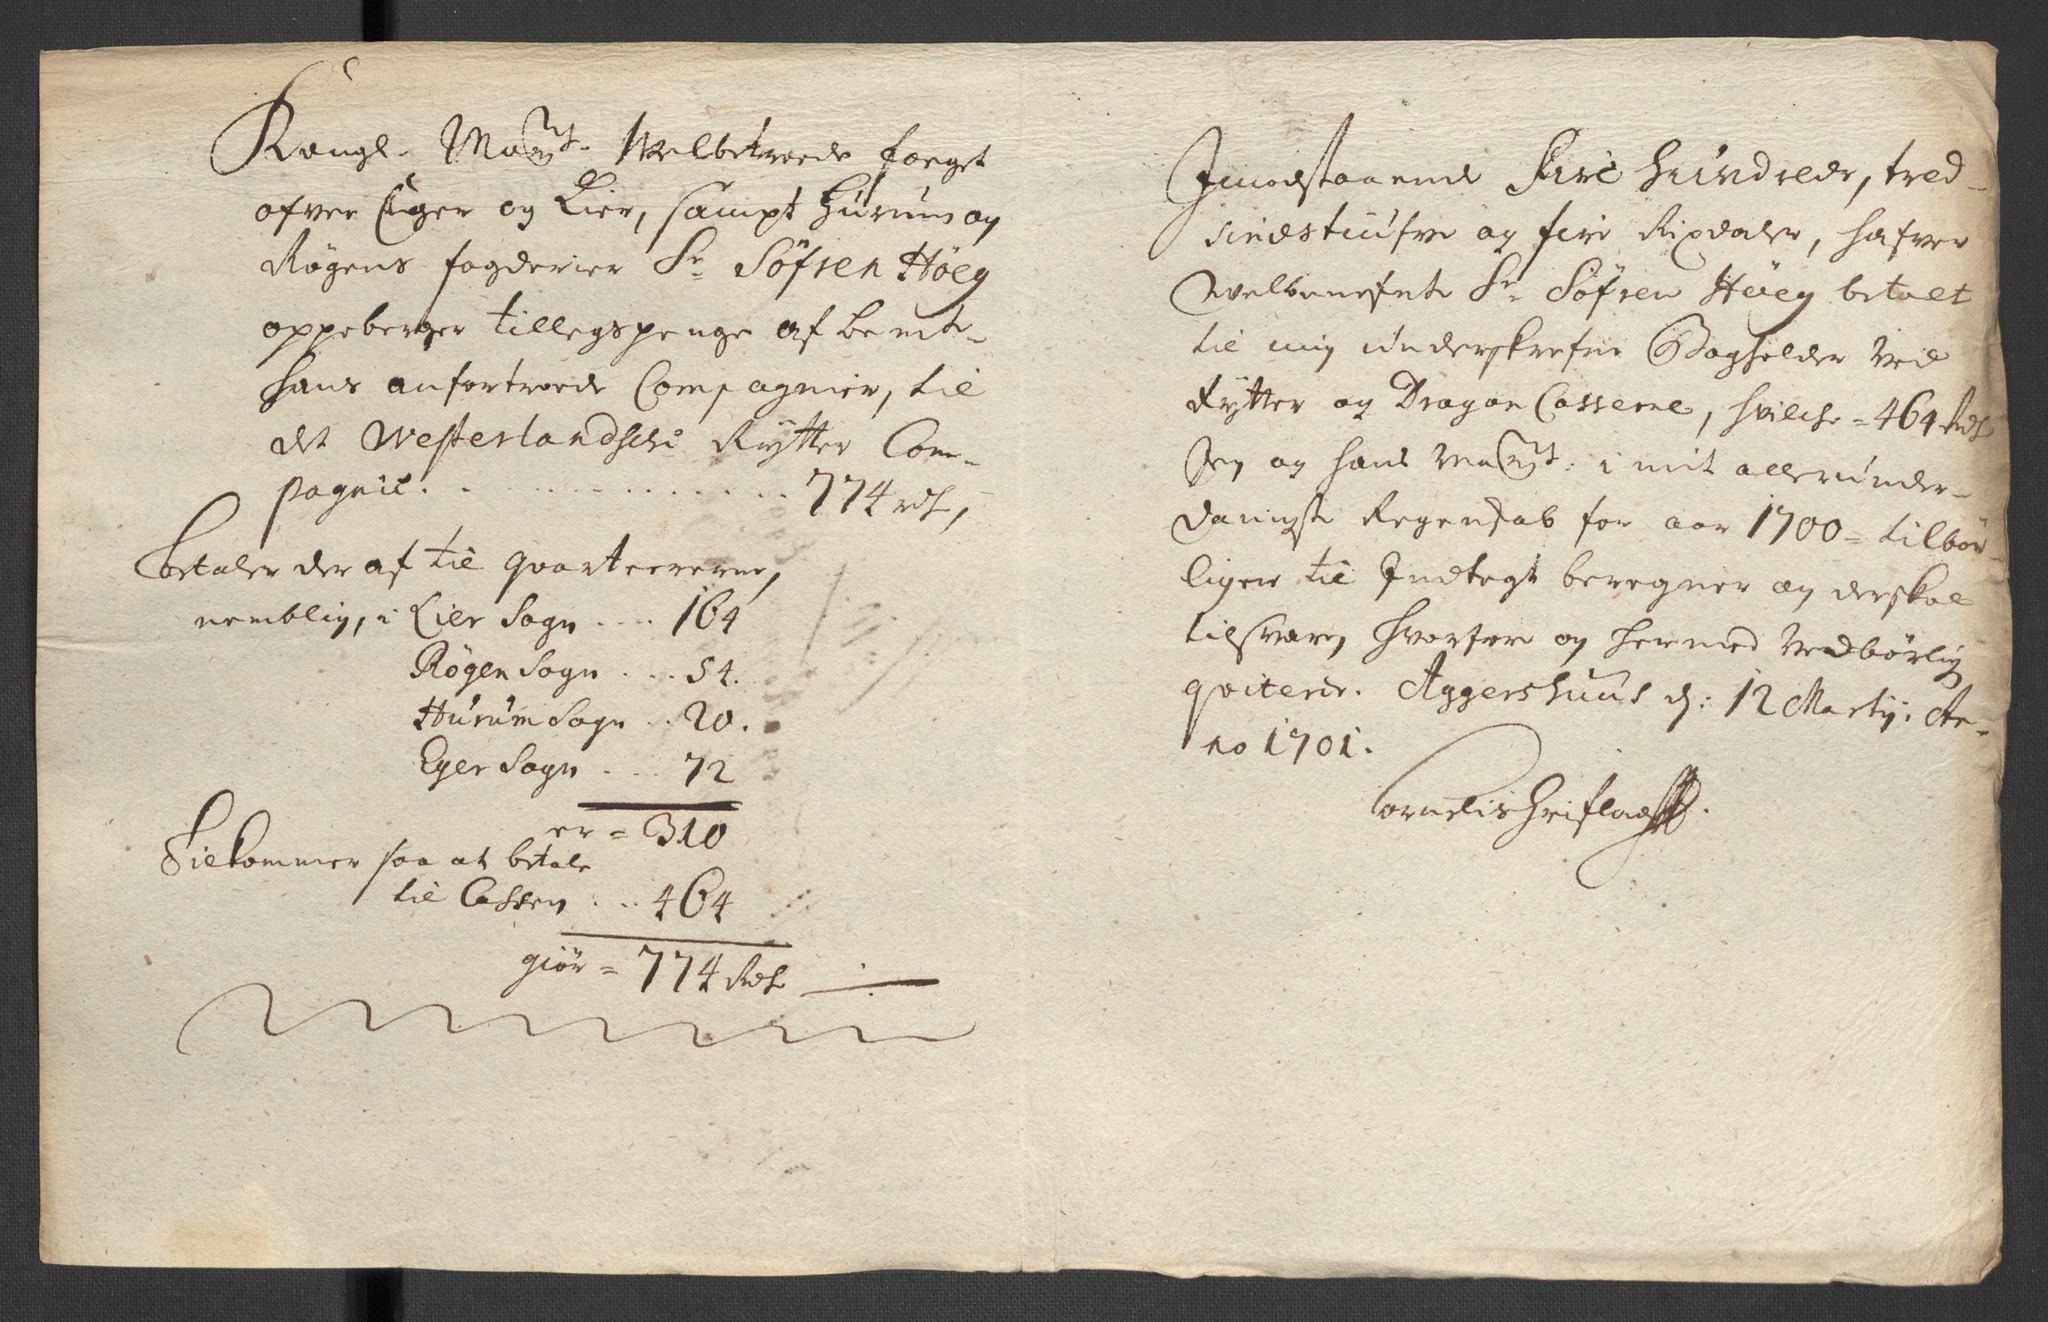 Kongl. Mayt. Welbetroede foeget
ofver Eger og Lier, sampt Hurum og
Røgens fogderier Sr. Söfren Höeg
oppeberger tillegspenge af bemte
hans anfortroede Compagnier, til
det Westerlandsche Rytter Com-
pagnie. . . . . . . . . . . . 774 rdl,
Betaler der af til quarteererne,
nemblig, i Lier Sogn . . . . 164
Røgen Sogn . . . 54.
Hurum Sogn . . 20.
Eger Sogn . . . 72
er = 310
Tilkommer saa at betale
til Cassen . . . 464
giör = 774 Rdl
Imodstaaende Fire Hundrede, tred-
sindstiufve og fire Rixdaler, hafver
Welbemelte Sr. Söfren Höeg betalt
til mig underskrefne Bogholder ved
Rytter og Dragon Casserne, hvilche = 464 Rdl
Jeg og hans Mayt. i mit allerunder-
danigste Regenskab for aar 1700 = tilbör-
ligen til Indtegt beregner og der skal
tilsvare, hvorfore og hermed vedbörlig
qviterer. Aggershuus d: 12 Marty. An-
no 1701.
Cornelis